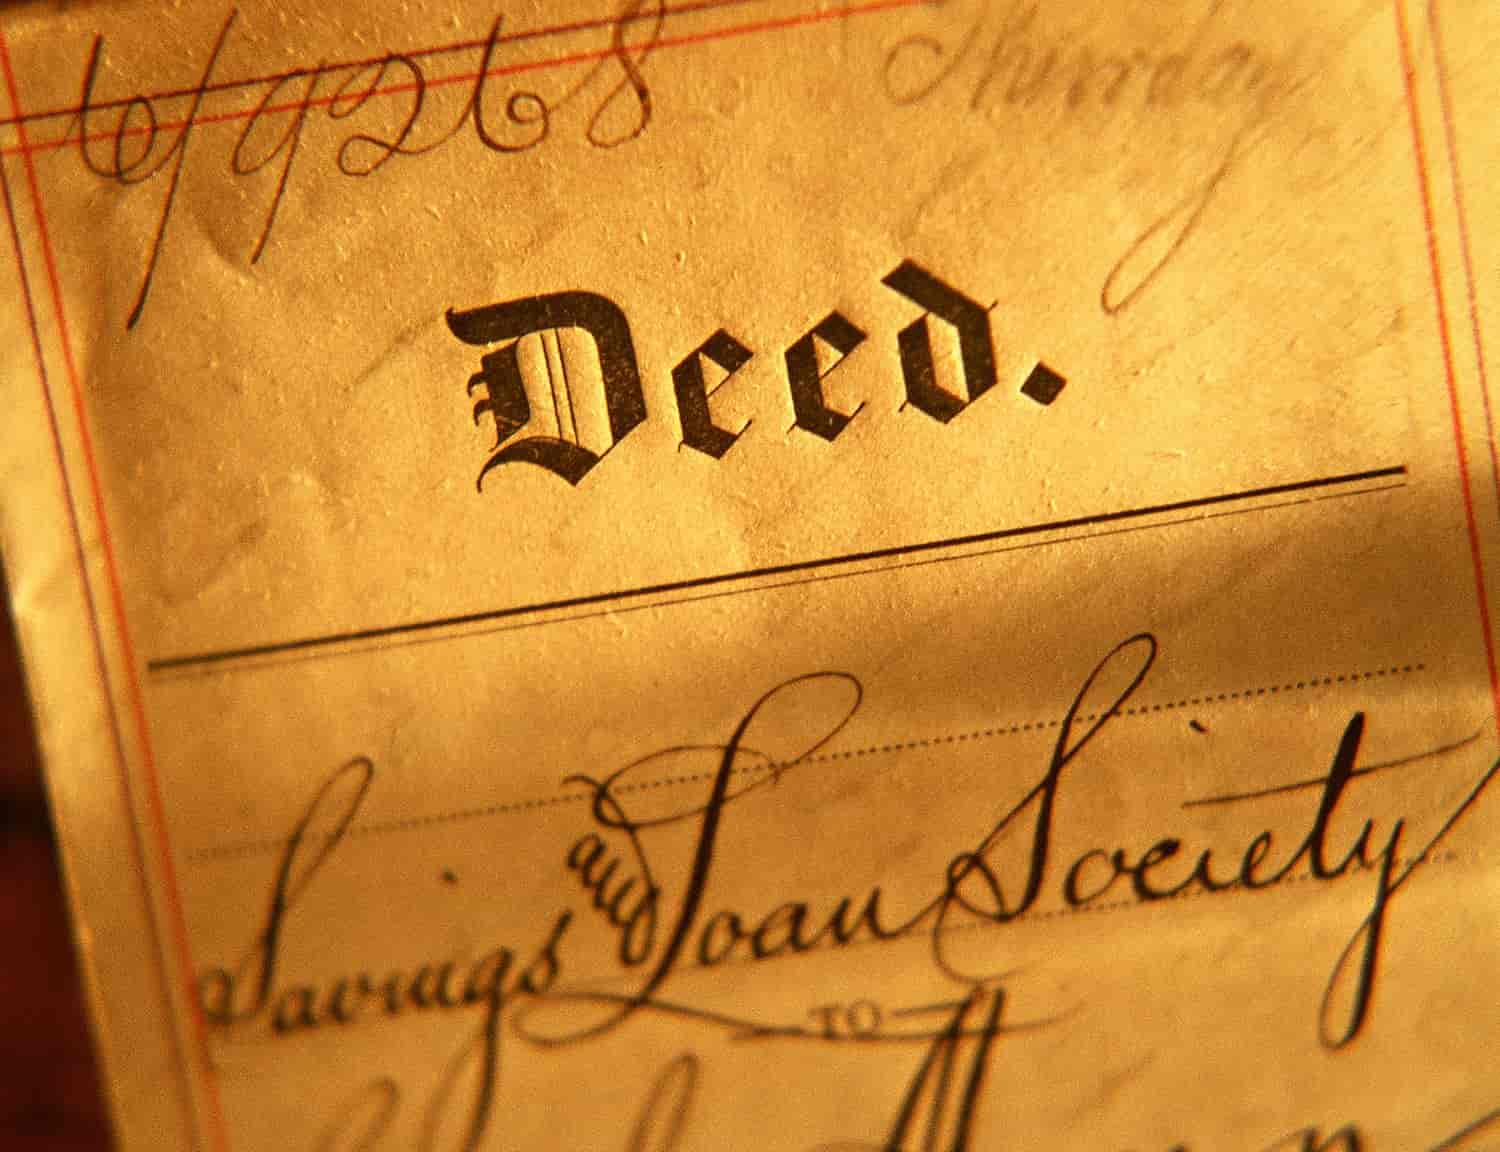 6/9268 Thursday
Deed.
Savings and Loan Society
TO